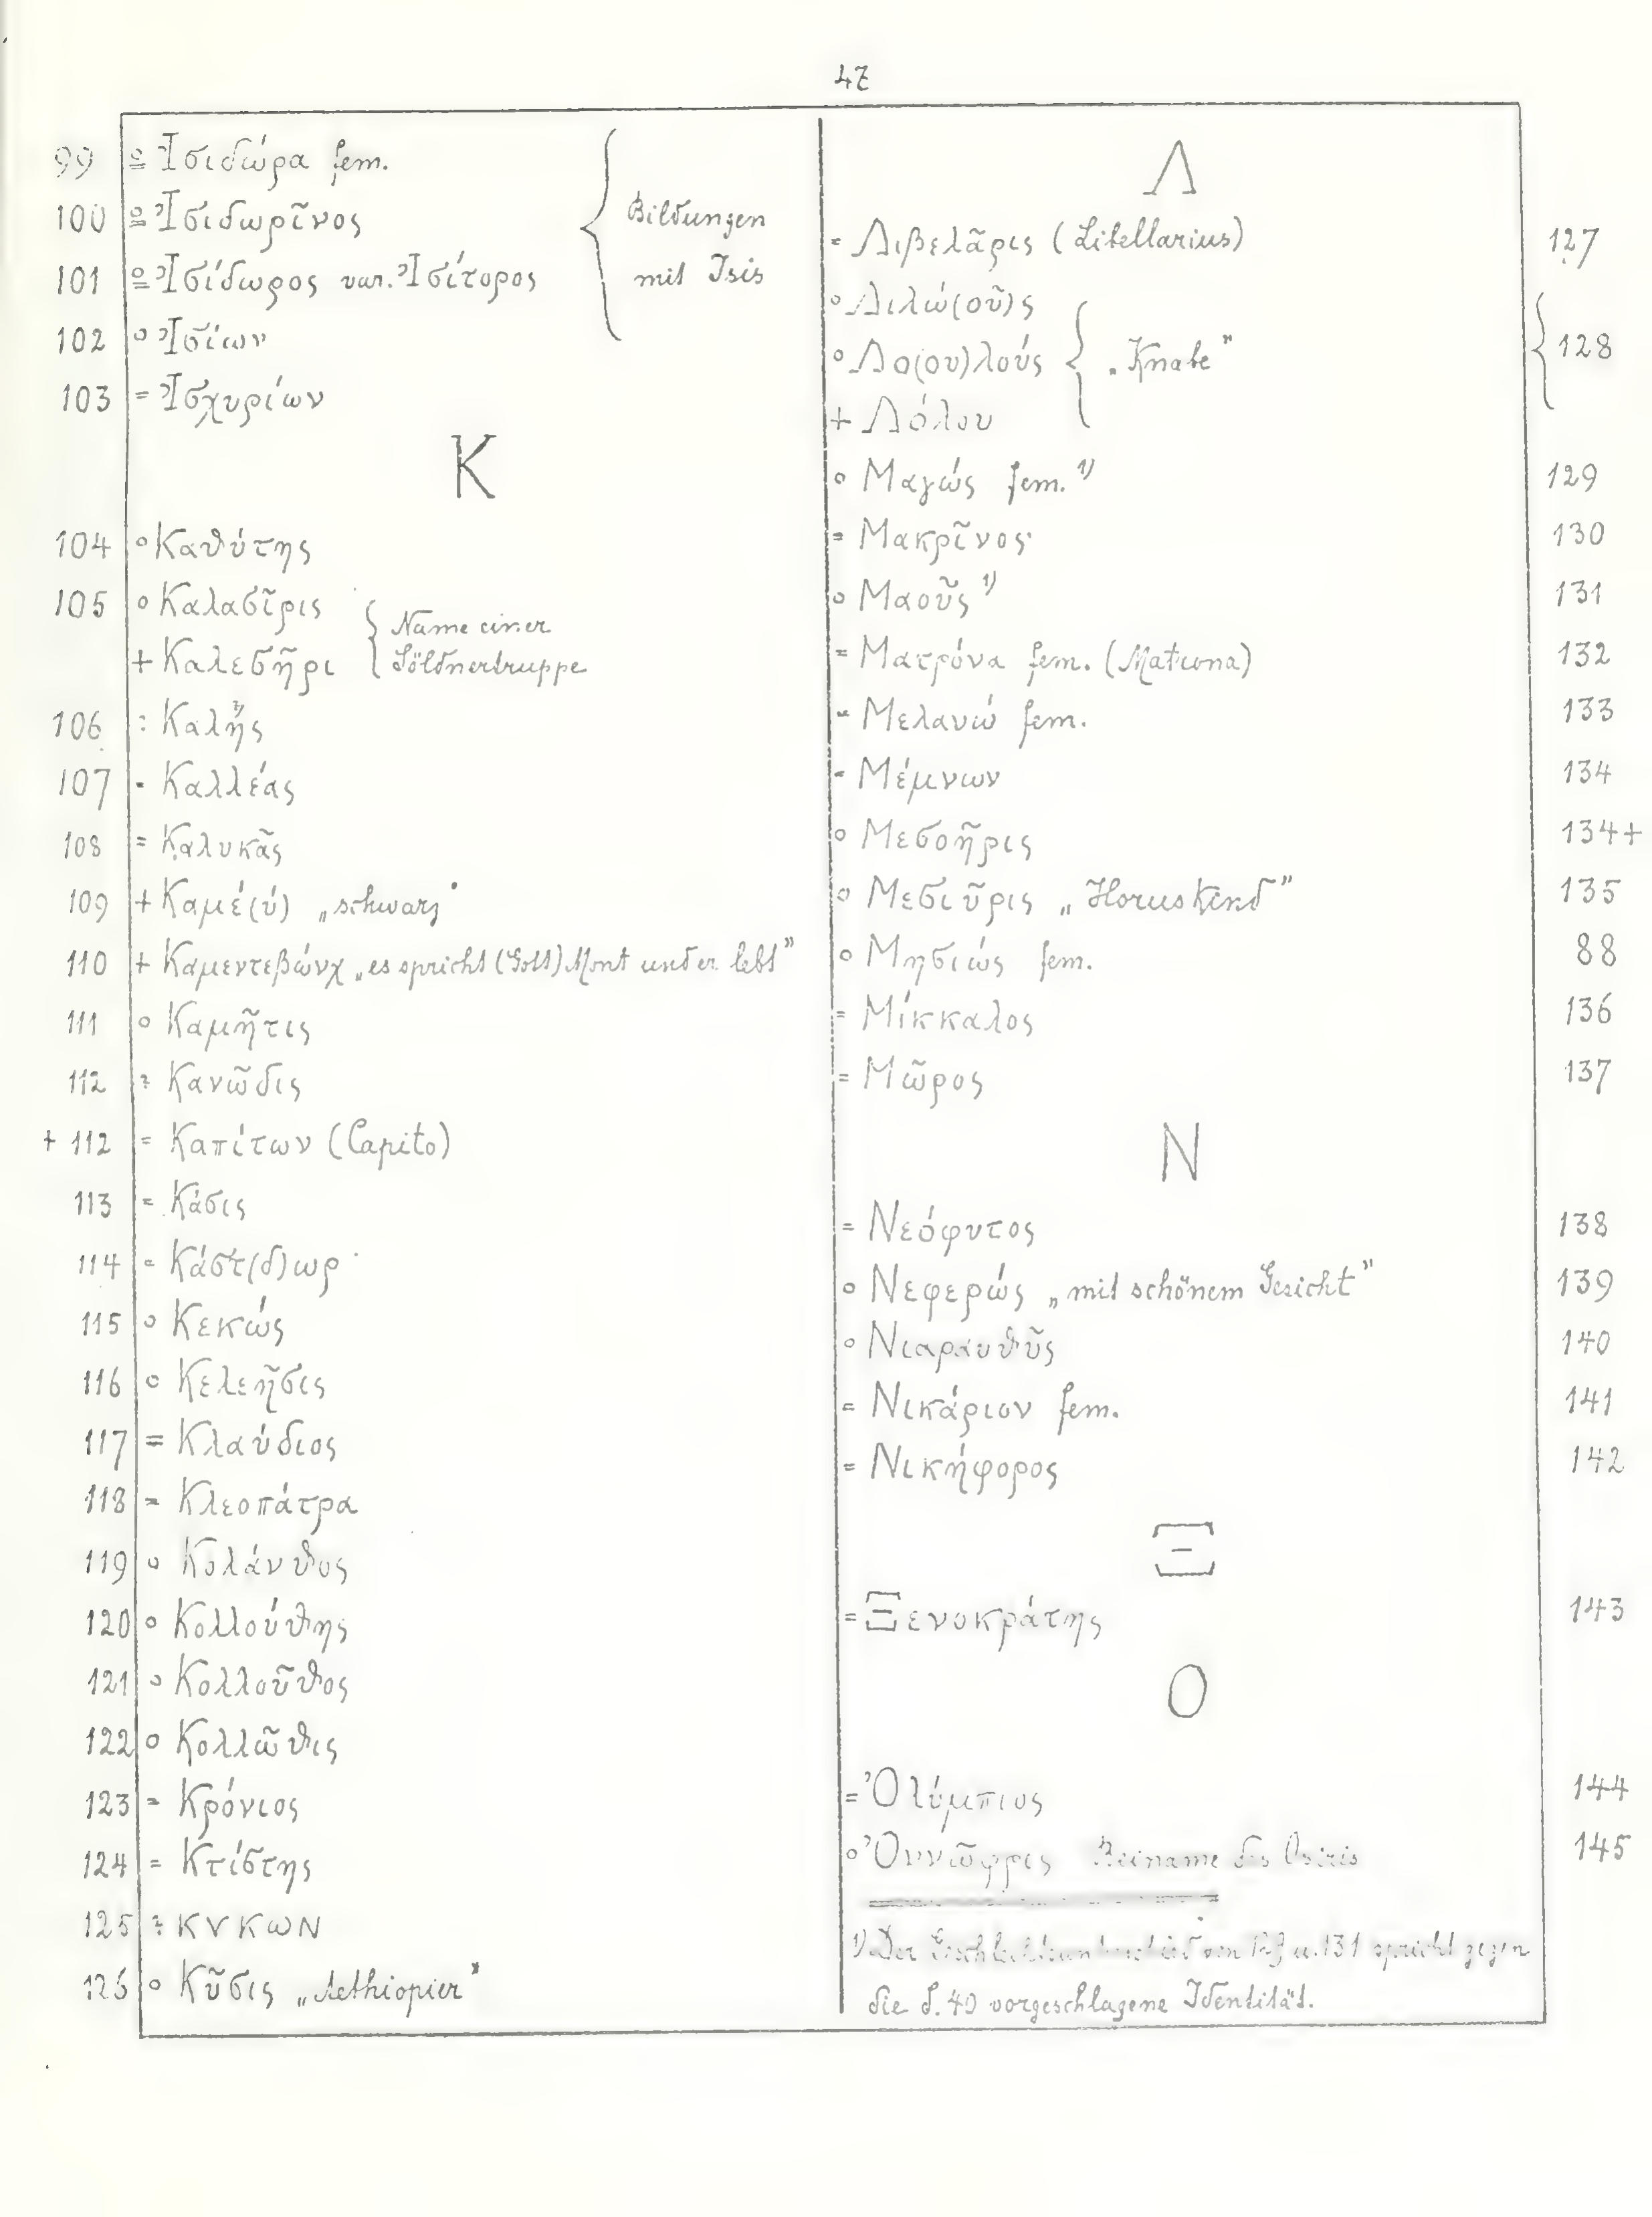 47
99 ≗ Ἰσιδώρα fem.
100 ≗ Ἰσιδωρῖνος
101 ≗ Ἰσίδωρος var. Ἰσίτορος
102 ° Ἰσίων
Bildungen
mit Isis
103 = Ἰσχυρίων
K
104 ° Καθύτης
105 ° Καλασῖρις
+ Καλεσῆρι
Name einer
Söldnertruppe
106 : Καλῆς
107 = Καλλέας
108 = Καλυκᾶς
109 + Καμέ(ύ) „schwarz"
110 + Καμεντεβώνχ „es spricht (Gott) Mont und er lebt"
111 ° Καμῆτις
112 ? Κανῶδις
+ 112 = Καπίτων (Capito)
113 = Κάσις
114 = Κάστ(δ)ωρ
115 ° Κεκώς
116 ° Κελεῆσις
117 = Κλαύδιος
118 = Κλεοπάτρα
119 ° Κολάνθος
120 ° Κολλούθης
121 ° Κολλοῦθος
122 ° Κολλῶθις
123 = Κρόνιος
124 = Κτίστης
125 ? ΚΥΚωΝ
126 ° Κῦσις „Aethiopier"
Λ
= Λιβελᾶρις (Libellarius) 127
° Λιλώ(οῦ)ς
° Λο(ου)λούς „Knabe" 128
+ Λόλου
° Μαγώς fem. 1) 129
= Μακρῖνος 130
° Μαοῦς 1) 131
= Ματρόνα fem. (Matrona) 132
= Μελανώ fem. 133
= Μέμνων 134
° Μεσοῆρις 134+
° Μεσιῦρις „Horuskind" 135
° Μησιώς fem. 88
= Μίκκαλος 136
= Μῶρος 137
N
= Νεόφυτος 138
° Νεφερώς „mit schönem Gesicht" 139
° Νιαραυθῦς 140
= Νικάριον fem. 141
= Νικήφορος 142
Ξ
= Ξενοκράτης 143
O
= Ὀλύμπιος 144
° Ὀννῶφρις Beiname des Osiris 145
1) Der von 129 u. 131 spricht gegen
die S. 40 vorgeschlagene Identität.